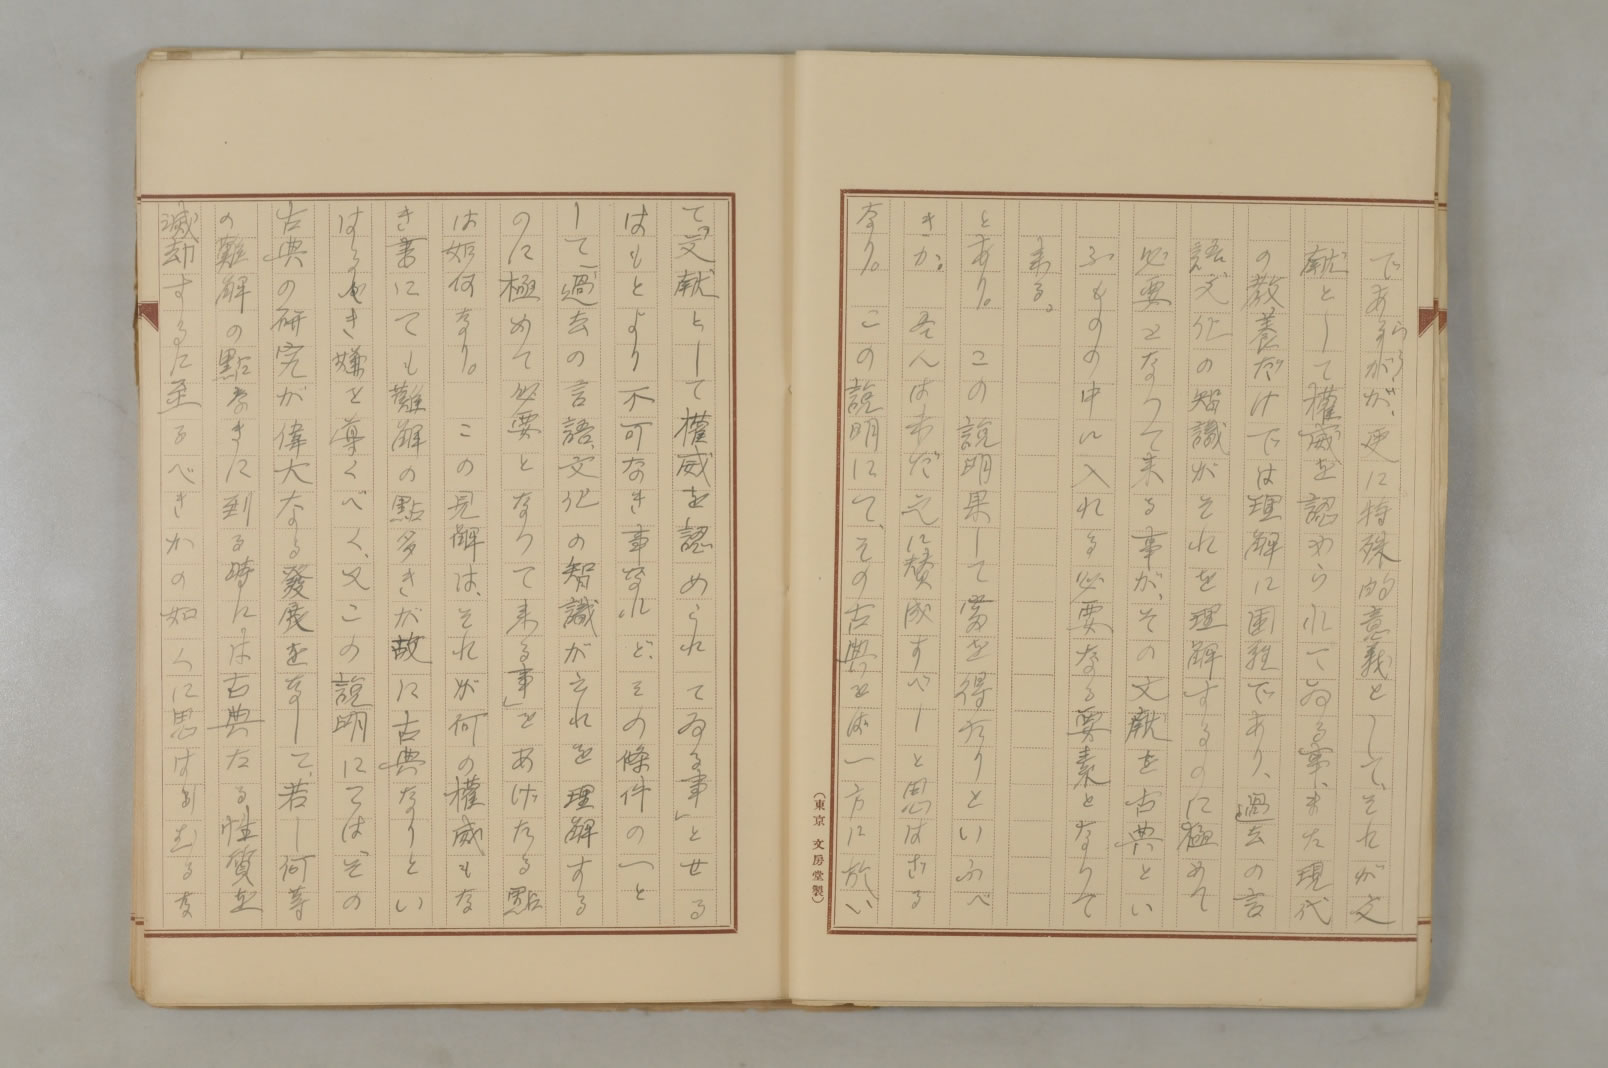 であらうが、更に特殊的意義として、それが文
献として權威を認められてゐる事、また現代
の教養だけでは理解に困難であり、過去の言
語文化の知識がそれを理解するのに極めて
必要となつて来る事が、その文獻を古典とい
ふものの中に入れる必要なる要素となつて
来る。
とあり。この説明果して當を得たりといふべ
きか。吾人は未だ之に賛成すべしと思はざる
なり。この説明にて、その古典とは一方に於い
て「文献として權威を認められてゐる事」とせる
はもとより不可なき事なれど、その條件の一と
して「過去の言語、文化の智識がそれを理解する
のに極めて必要となつて来る事」とあげたる點
は如何なり。この見解は、それが何の權威もな
き書にても難解の點多きが故に古典なりとい
はるべき嫌を導くべく、又この説明にては、その
古典の研究が偉大なる發展をなして、若し何等
の難解の點なきに到る時には古典たる性質を
滅却するに至るべきかの如くに思はるゝな
(東京 文房堂製)